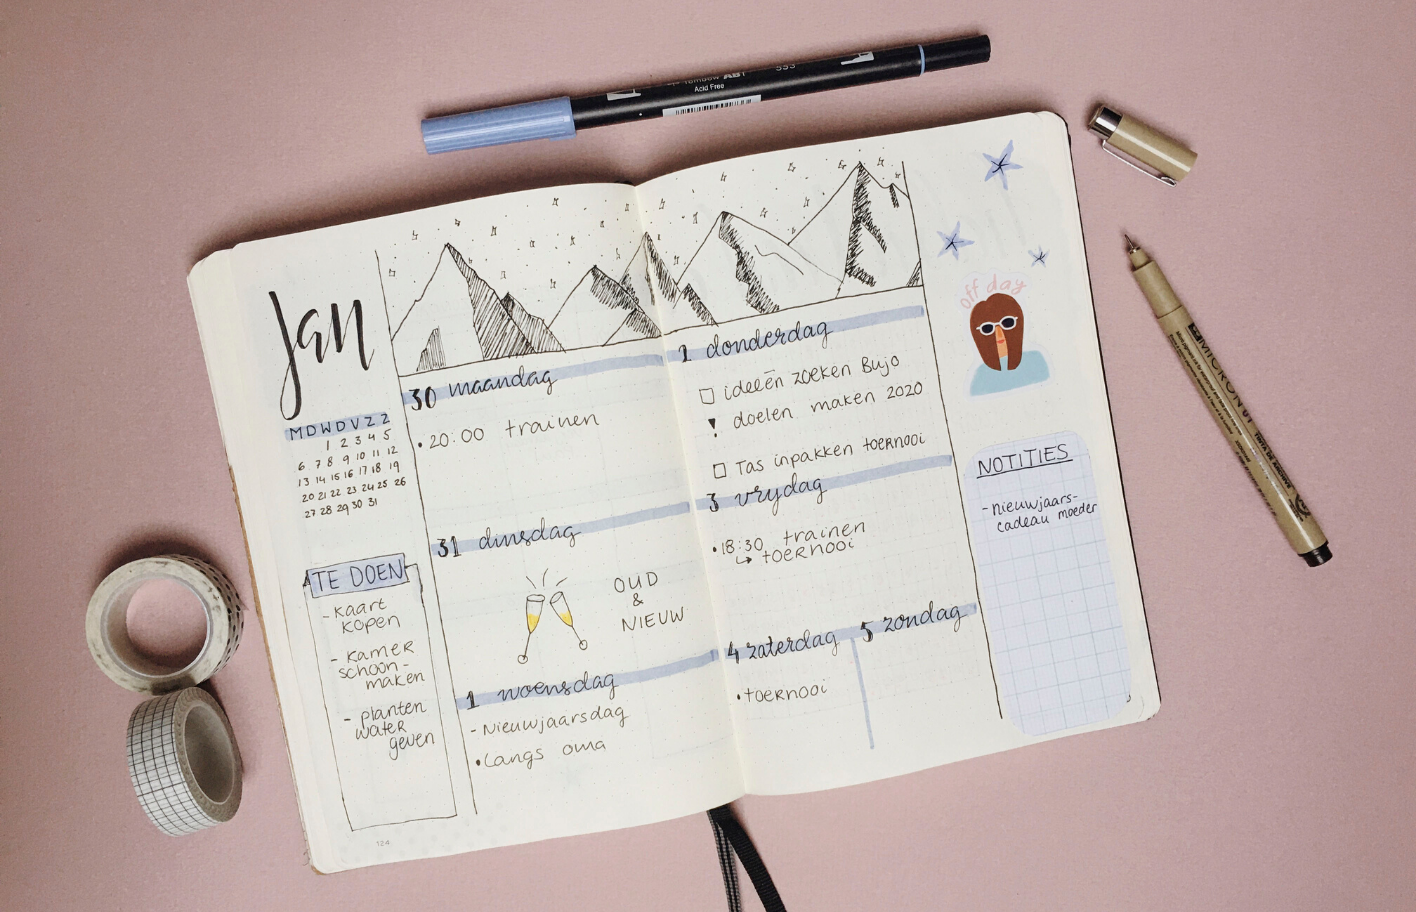 Jan
M D W D V Z Z
1 2 3 4 5
6 7 8 9 10 11 12
13 14 15 16 17 18 19
20 21 22 23 24 25 26
27 28 29 30 31
TE DOEN
- kaart
kopen
- kamer
schoon-
maken
- planten
water
geven
124
30 maandag
• 20:00 trainen
31 dinsdag
OUD
&
NIEUW
1 woensdag
- Nieuwjaarsdag
• Langs oma
2 donderdag
ideeën zoeken Bujo
doelen maken 2020
Tas inpakken toernooi
3 vrydag
• 18:30 trainen
↳ toernooi
4 zaterdag
• toernooi
5 zondag
off day
NOTITIES
- nieuwjaars-
cadeau moeder
ABT
Acid Free
553
MICRON